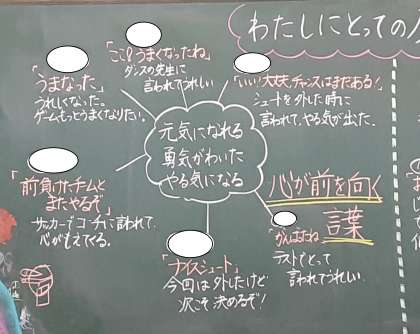 わたしにとっての
「ここ!うまくなったね」
ダンスの先生に
言われてうれしい
「うまなった」
うれしくなった。
ゲームもっとうまくなりたい。
「いい!大丈夫、チャンスはまだある!」
シュートを外した時に
言われて、やる気が出た。
元気になれる
勇気がわいた
やる気になる
「前負けたチームと
またやるぞ」
サッカーでコーチに言われて、
心がもえてくる。
心が前を向く
言葉
「ナイスシュート」
今回は外したけど
次こそ決めるぞ!
「がんばったね」
テストでとって
言われてうれしい。